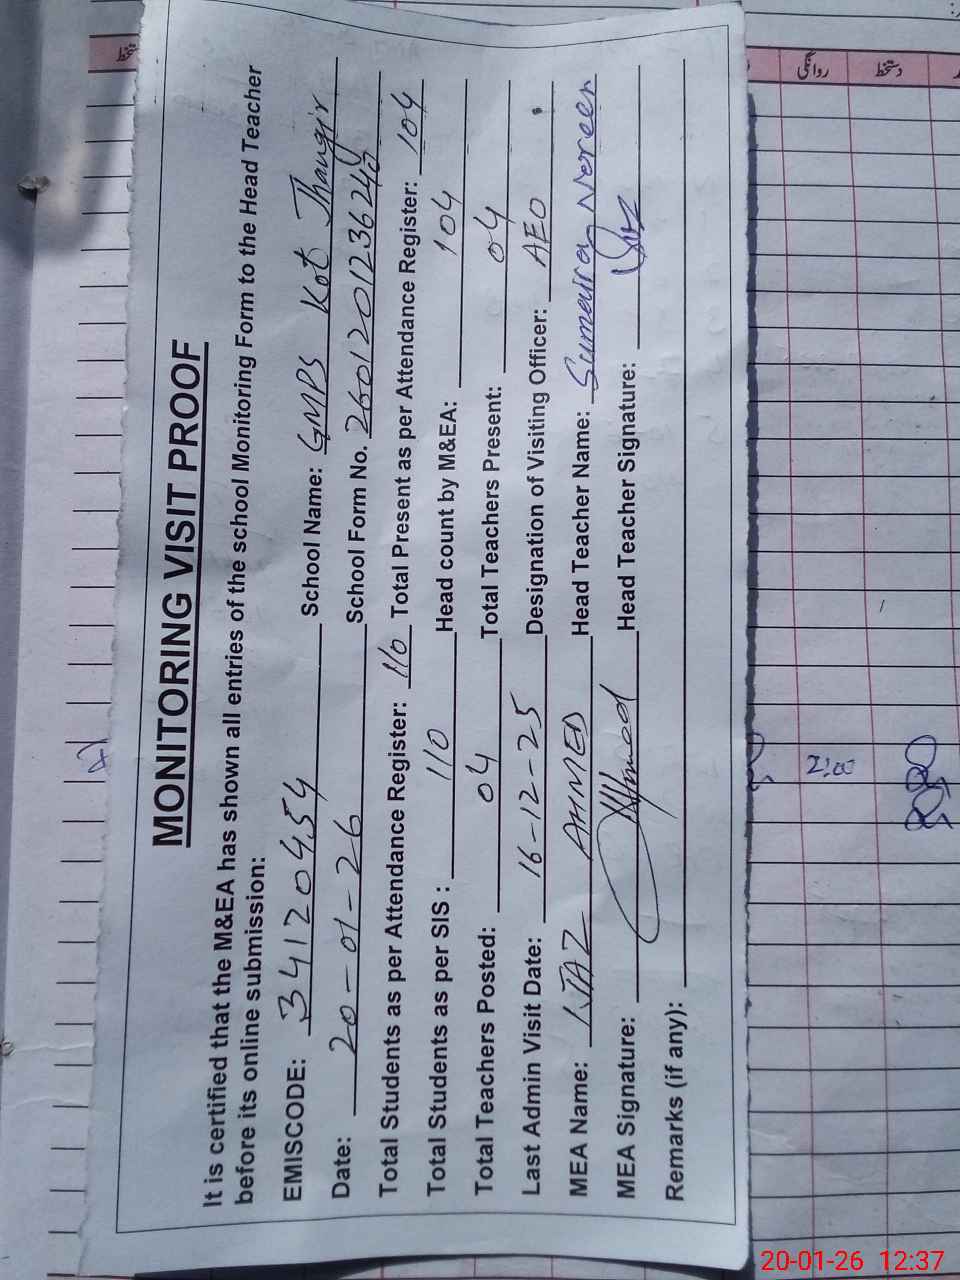 MONITORING VISIT PROOF
It is certified that the M&EA has shown all entries of the school Monitoring Form to the Head Teacher
before its online submission:
EMISCODE: 34120454 School Name: GMPS Kot Jhangir
Date: 20-01-26 School Form No. 2601201236240
Total Students as per Attendance Register: 110 Total Present as per Attendance Register: 104
Total Students as per SIS : 110 Head count by M&EA: 104
Total Teachers Posted: 04 Total Teachers Present: 04
Last Admin Visit Date: 16-12-25 Designation of Visiting Officer: AEO
MEA Name: IJAZ AHMED Head Teacher Name: Sumaira Noreen
MEA Signature: Ahmed Head Teacher Signature:
Remarks (if any):
روانگی
دستخط
2:00
20-01-26 12:37